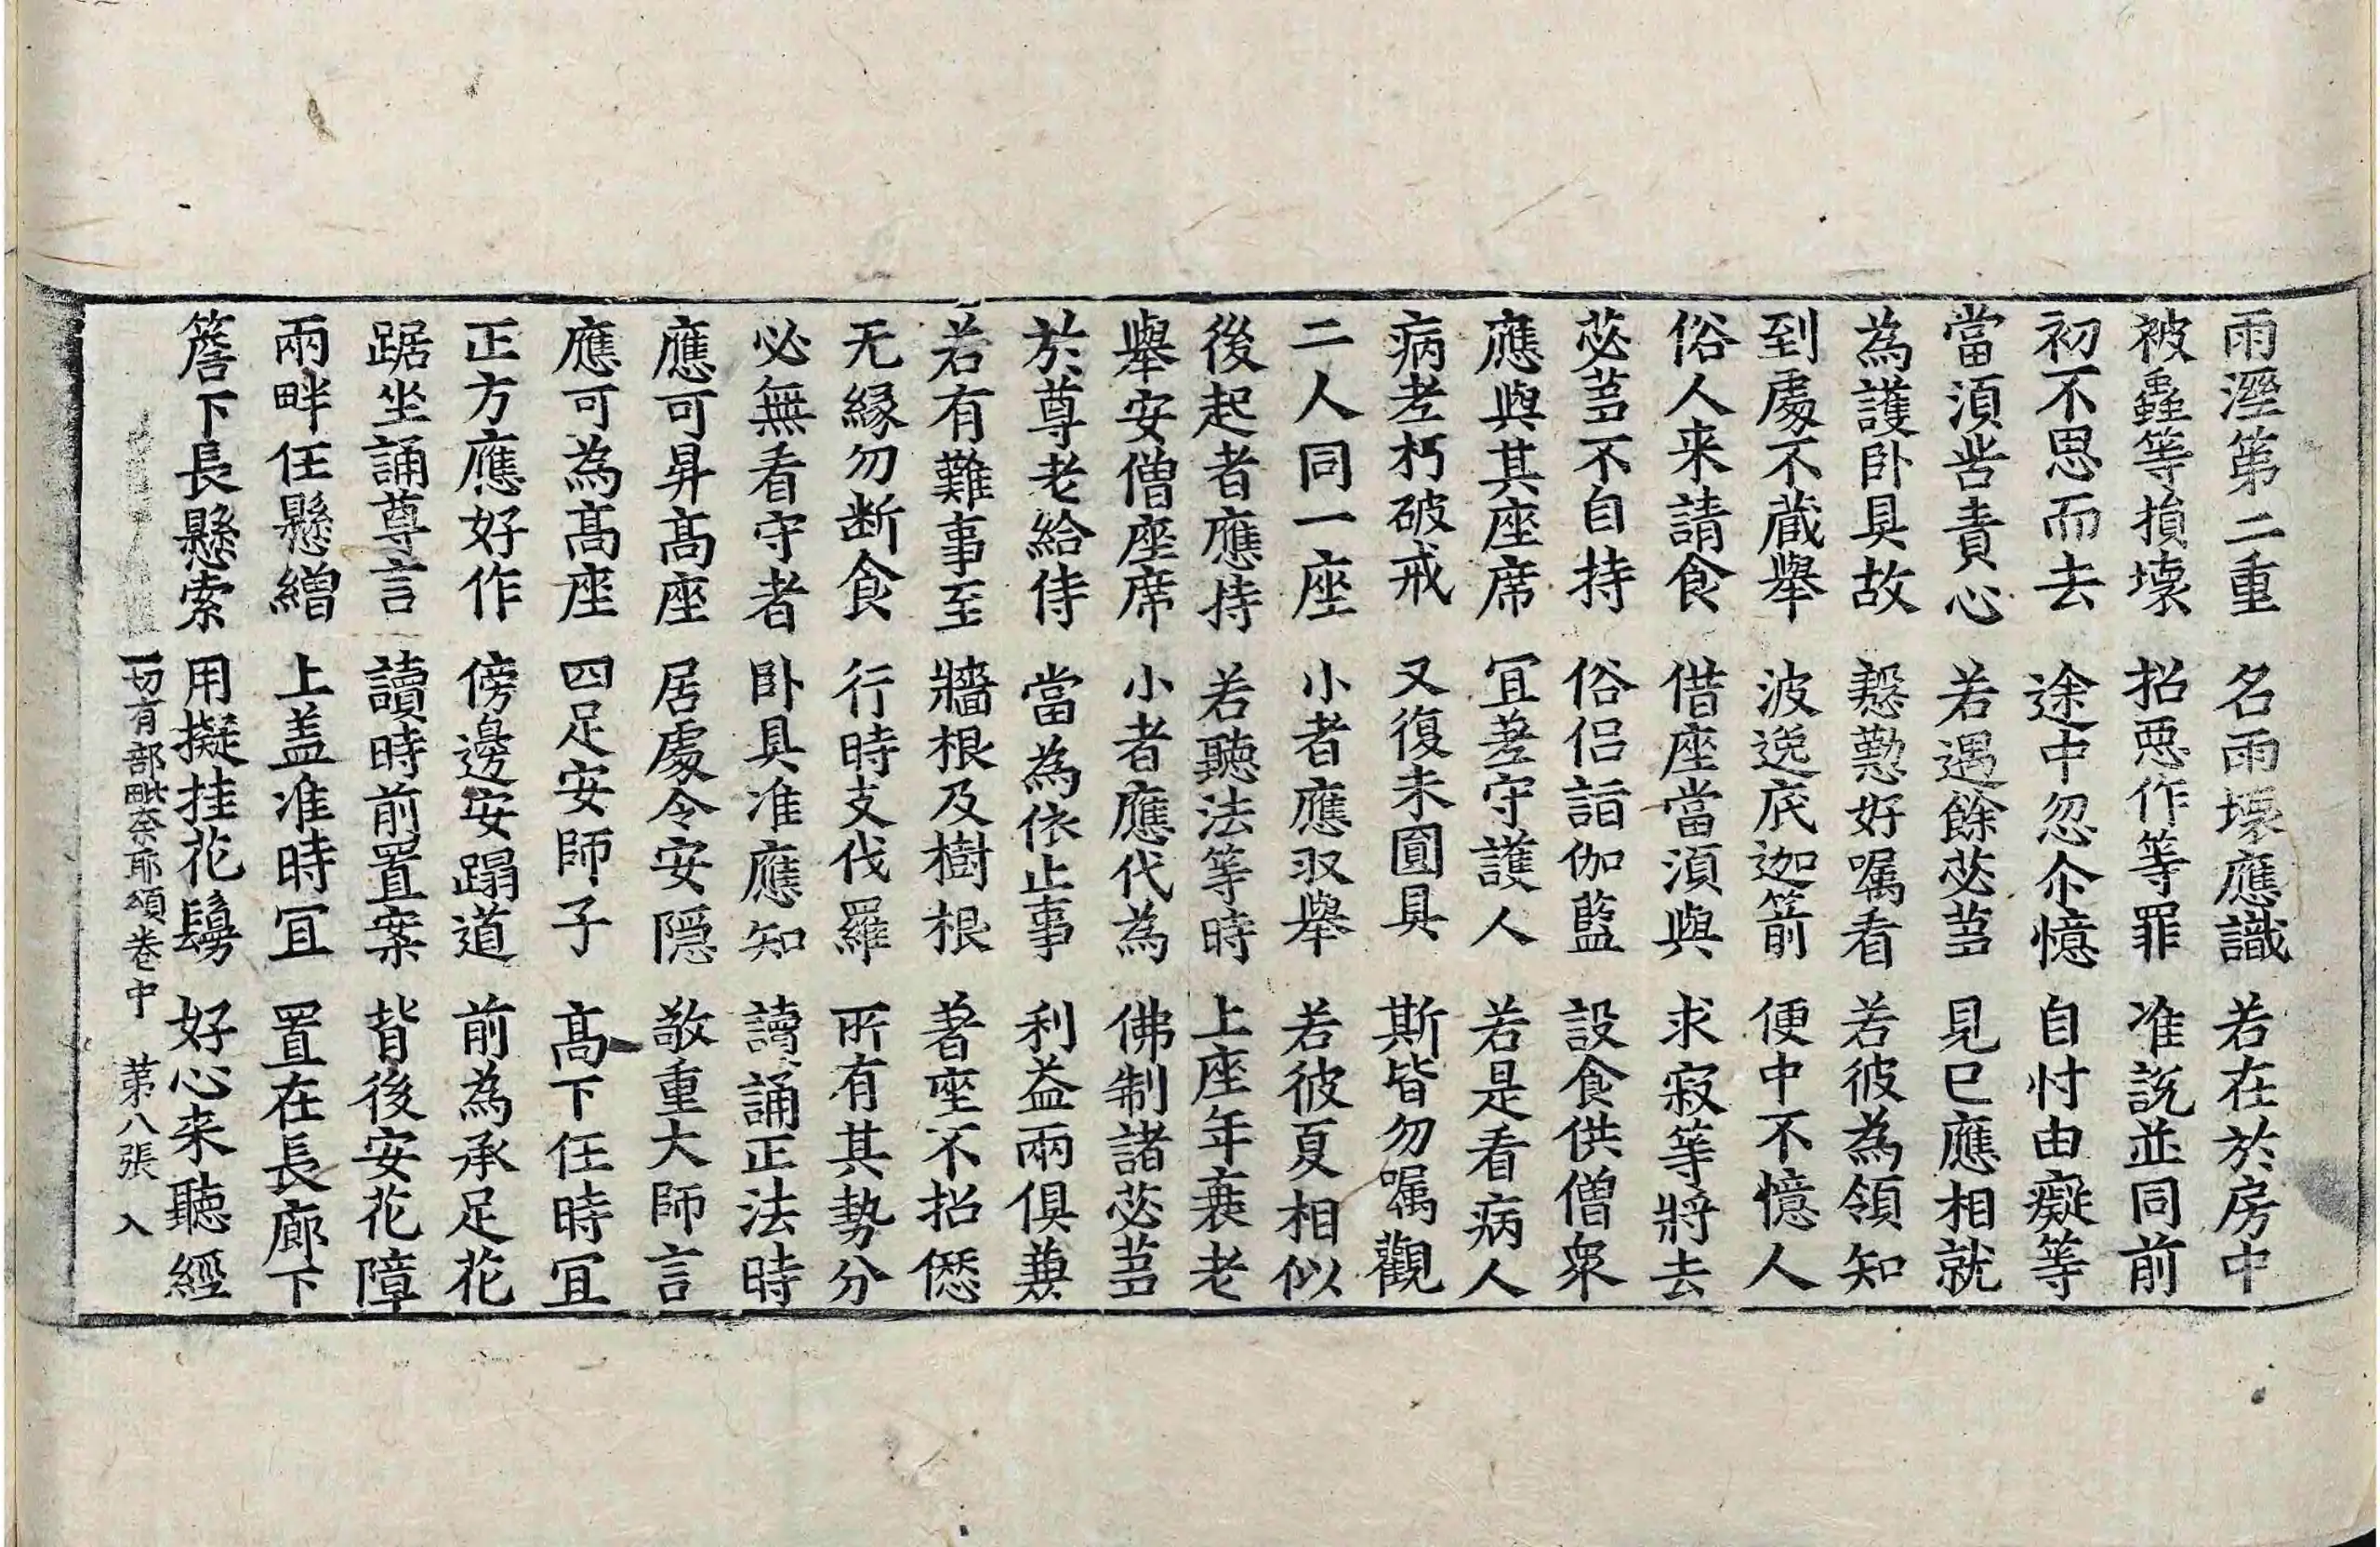 雨溼第二重 名雨壞應識 若在於房中
被蟲等損壞 招惡作等罪 准說並同前
初不思而去 途中忽尒憶 自忖由癡等
當湏呰責心 若遇餘苾芻 見已應相就
為護卧具故 慇懃好嘱看 若彼為領知
到處不藏舉 波逸底迦箭 便中不憶人
俗人来請食 借座當湏與 求寂等將去
苾芻不自持 俗侣詣伽藍 設食供僧衆
應與其座席 冝差守護人 若是看病人
病老朽破戒 又復未圓具 斯皆勿嘱觀
二人同一座 小者應収舉 若彼夏相似
後起者應持 若聽法等時 上座年衰老
舉安僧座席 小者應代為 佛制諸苾芻
於尊老給侍 當為依止事 利益兩俱兼
若有難事至 牆根及樹根 著座不招愆
无緣勿断食 行時支伐羅 所有其勢分
必無看守者 卧具准應知 讀誦正法時
應可昇髙座 居處令安隠 敬重大師言
應可為髙座 四足安師子 髙下任時冝
正方應好作 傍邊安蹋道 前為承足花
踞坐誦尊言 讀時前置案 背後安花障
兩畔任懸繒 上盖准時冝 置在長廊下
簷下長懸索 用擬挂花鬘 好心来聽經
一切有部毗奈耶頌卷中 第八張 入